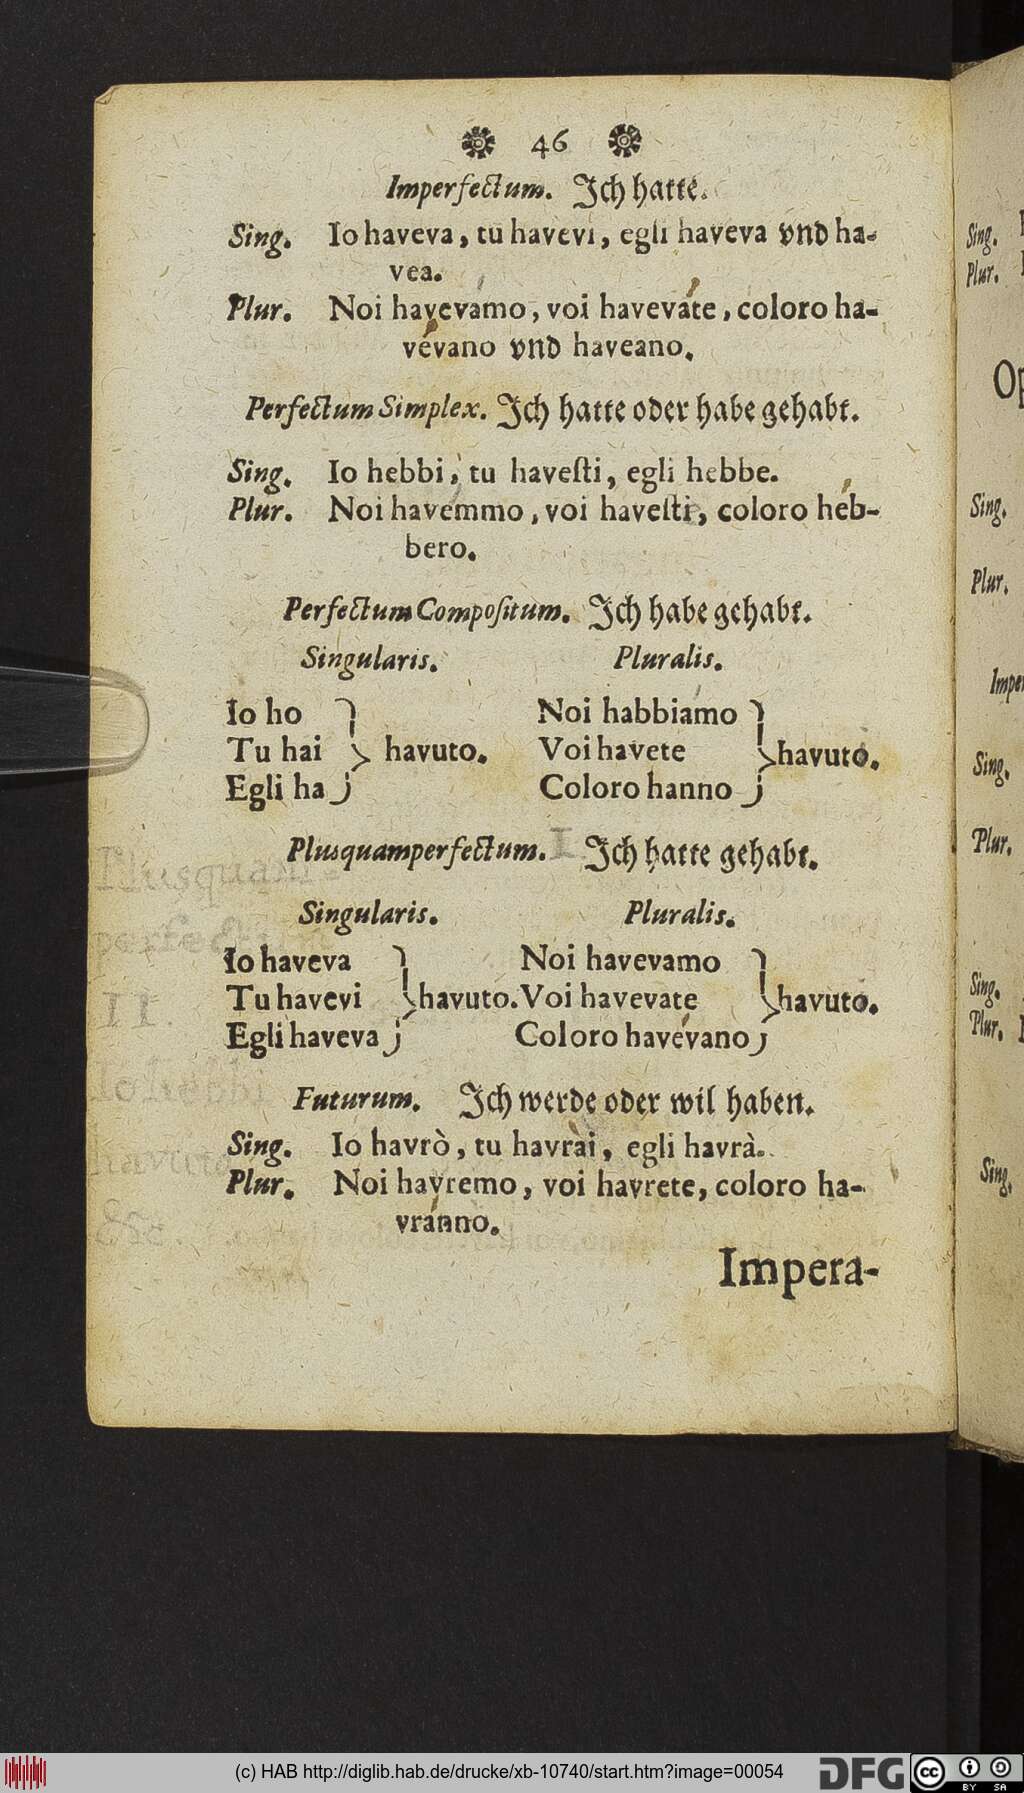 46
Imperfectum. Ich hatte.
Sing. Io haveva, tu havevi, egli haveva vnd ha-
vea.
Plur. Noi havevamo, voi havevate, coloro ha-
vévano vnd haveano.
Perfectum Simplex. Ich hatte oder habe gehabt.
Sing. Io hebbi, tu haveſti, egli hebbe.
Plur. Noi havemmo, voi haveſti, coloro héb-
bero.
Perfectum Compoſitum. Ich habe gehabt.
Singularis. Pluralis.
Io ho Noi habbiamo
Tu hai havuto. Voi havete havuto.
Egli ha Coloro hanno
Plusquamperfectum. I Ich hatte gehabt.
Plusquam-
perfectum
II.
Io hebbi
havuto
&c.
Singularis. Pluralis.
Io haveva Noi havevamo
Tu havevi havuto. Voi havevate havuto.
Egli haveva Coloro havévano
Futurum. Ich werde oder wil haben.
Sing. Io havrò, tu havrai, egli havrà.
Plur. Noi havremo, voi havrete, coloro ha-
vranno.
Impera-
Sing.
Plur.
Op
Sing.
Plur.
Imper
Sing.
Plur.
Sing.
Plur.
Sing.
(c) HAB http://diglib.hab.de/drucke/xb-10740/start.htm?image=00054
DFG
cc BY SA